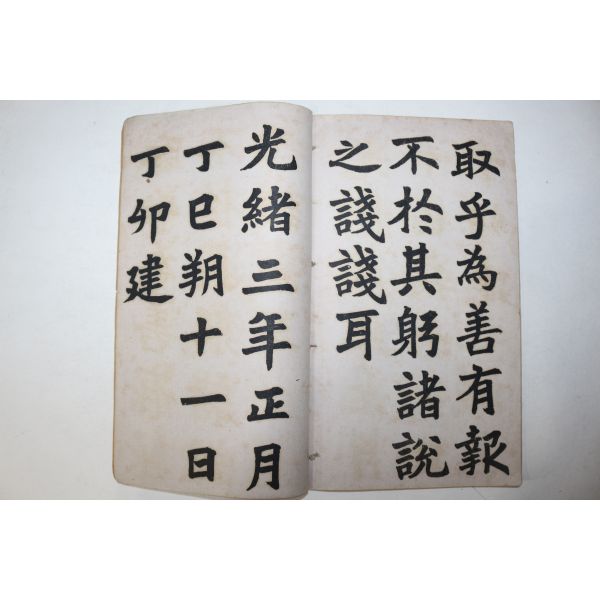 取乎為善有報
不於其躬諸說
之諓諓耳
光緒三年正月
丁巳朔十一日
丁卯建